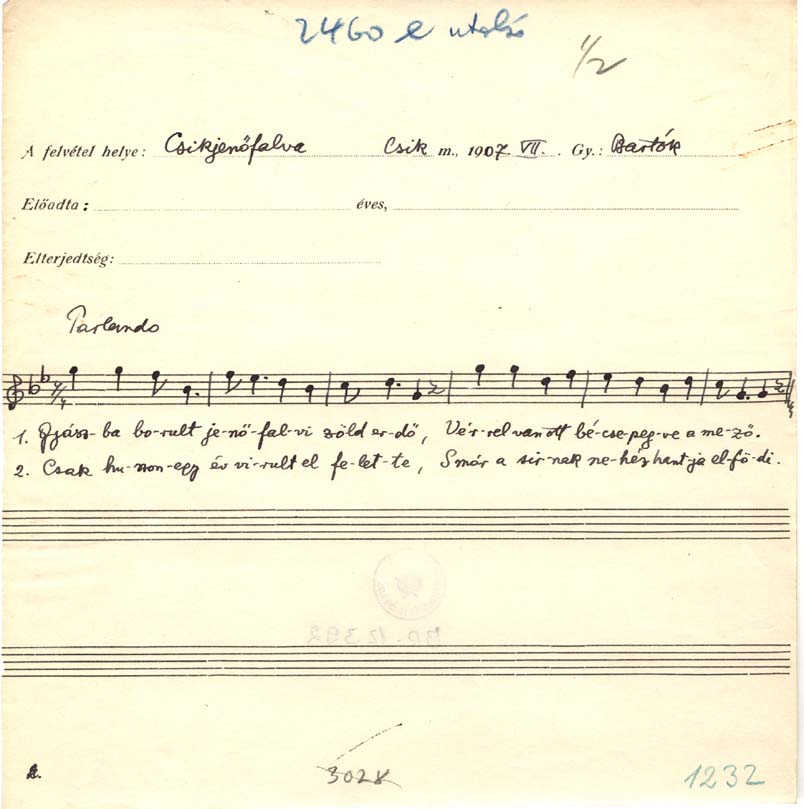 2460 e utolsó
1/2
A felvétel helye: Csikjenőfalva Csik m., 1907 VII. Gy.: Bartók
Előadta: éves,
Elterjedtség:
Parlando
1. Gyász-ba bo-rult je-nő-fal-vi zöld er-dő, Vér-rel van ott bé-cse-peg-ve a me-ző.
2. Csak hu-szon-egy év vi-rult el fe-let-te, S már a sir-nak ne-héz hant-ja el-fö-di.
BR. 12392
3028
1232